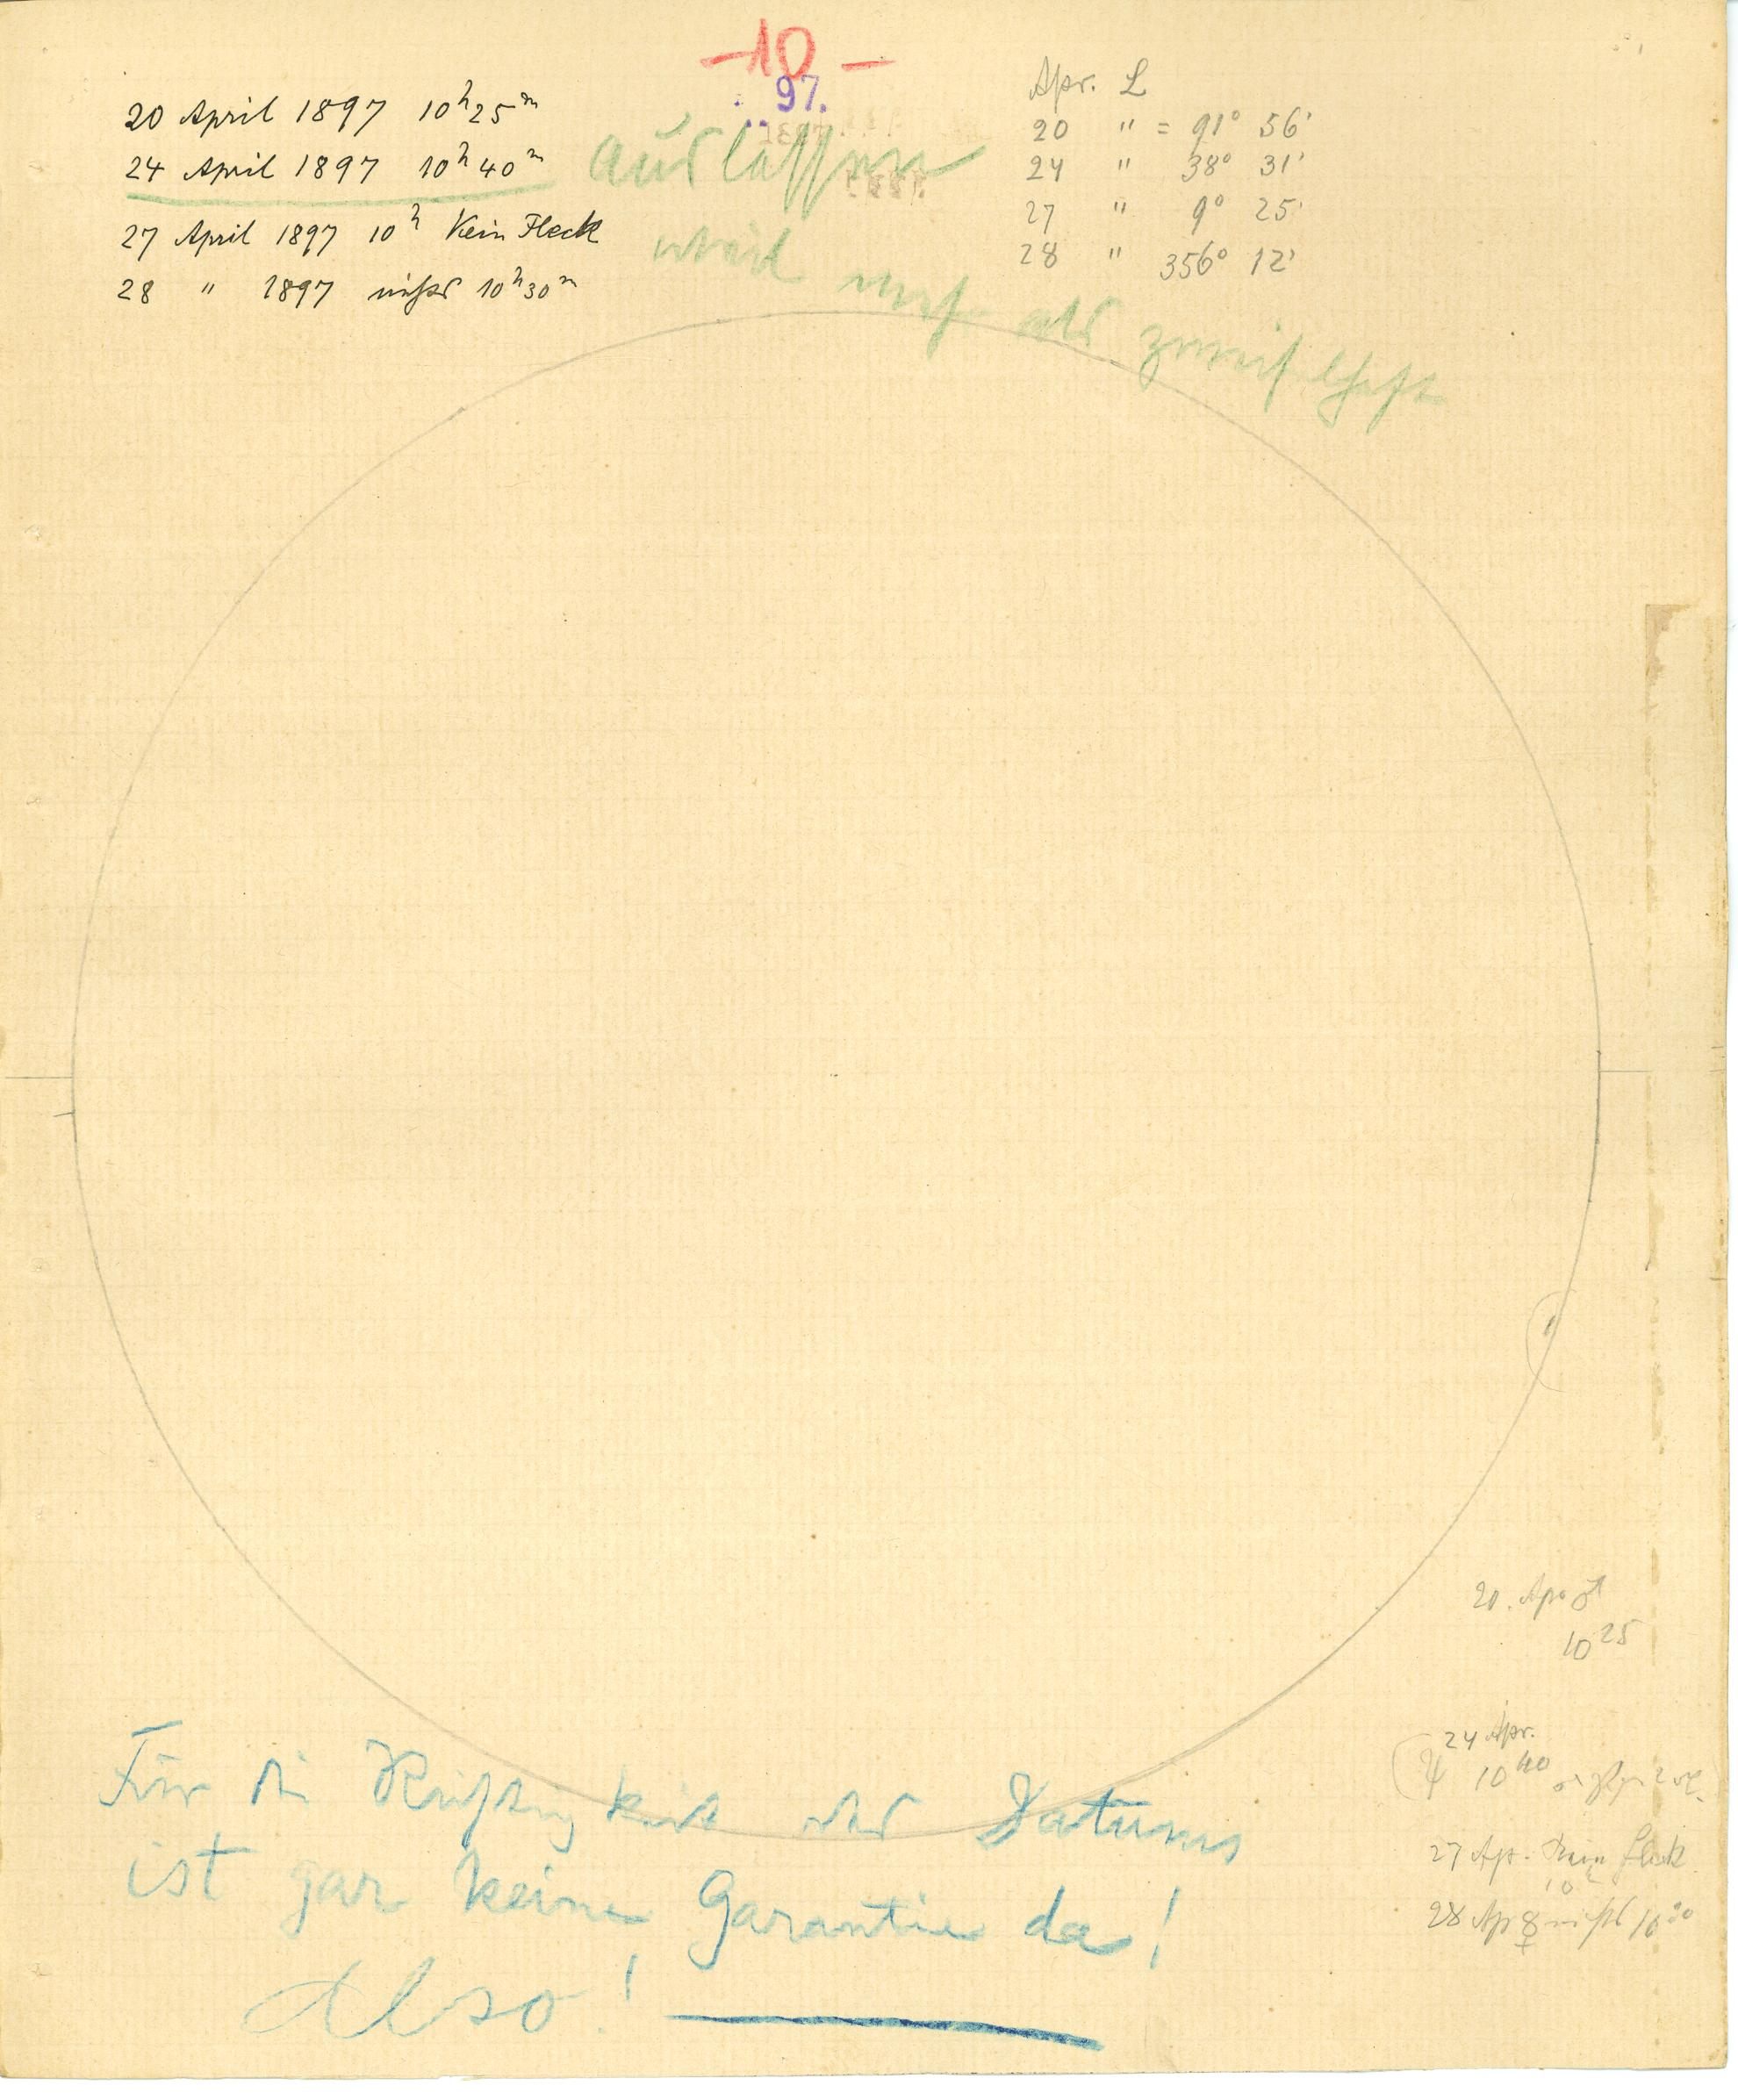 -10-
97.
20 April 1897 10ʰ25ᵐ
24 April 1897 10ʰ40ᵐ
27 April 1897 10ʰ Kein Fleck
28 " 1897 nichts 10ʰ30ᵐ
auslassen
weil mehr als zweifelhaft
Apr. L
20 " = 91° 56'
24 " 38° 31'
27 " 9° 25'
28 " 356° 12'
20. Apr ♂
10 25
24 Apr.
♃ 10 40
27 Ap. Kein Fleck
10ʰ
28 Ap ☿ nichts 10 30
Für die Richtigkeit des Datums
ist gar keine Garantie da!
Also!